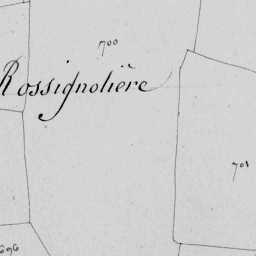 700
Rossignolière
701
696